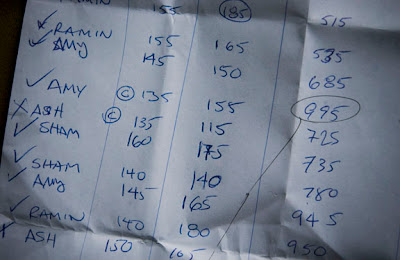 155 185 515
✓ RAMIN 155 165 535
✓ AMY 145 150 685
✓ AMY © 135 155 995
✗ ASH © 135 115 725
✓ SHAM 160 175 735
✓ SHAM 140 140 780
✓ AMY 145 165 945
✓ RAMIN 140 180 950
✗ ASH 150 165